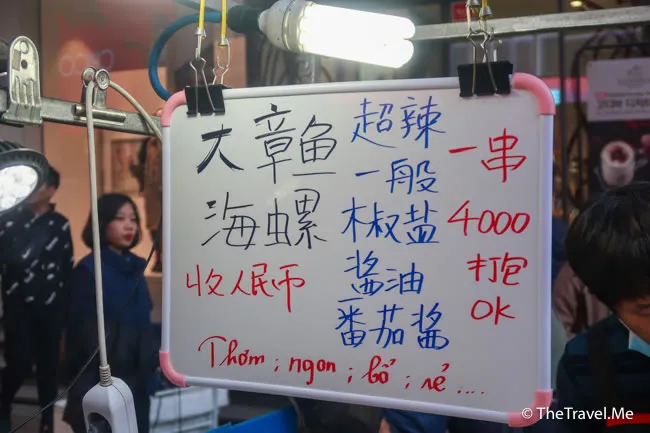 大章鱼
海螺
收人民币
超辣
一般
木椒盐
酱油
番茄酱
一串
4000
打包
OK
Thơm ; ngon ; bổ ; rẻ ...
© TheTravel.Me